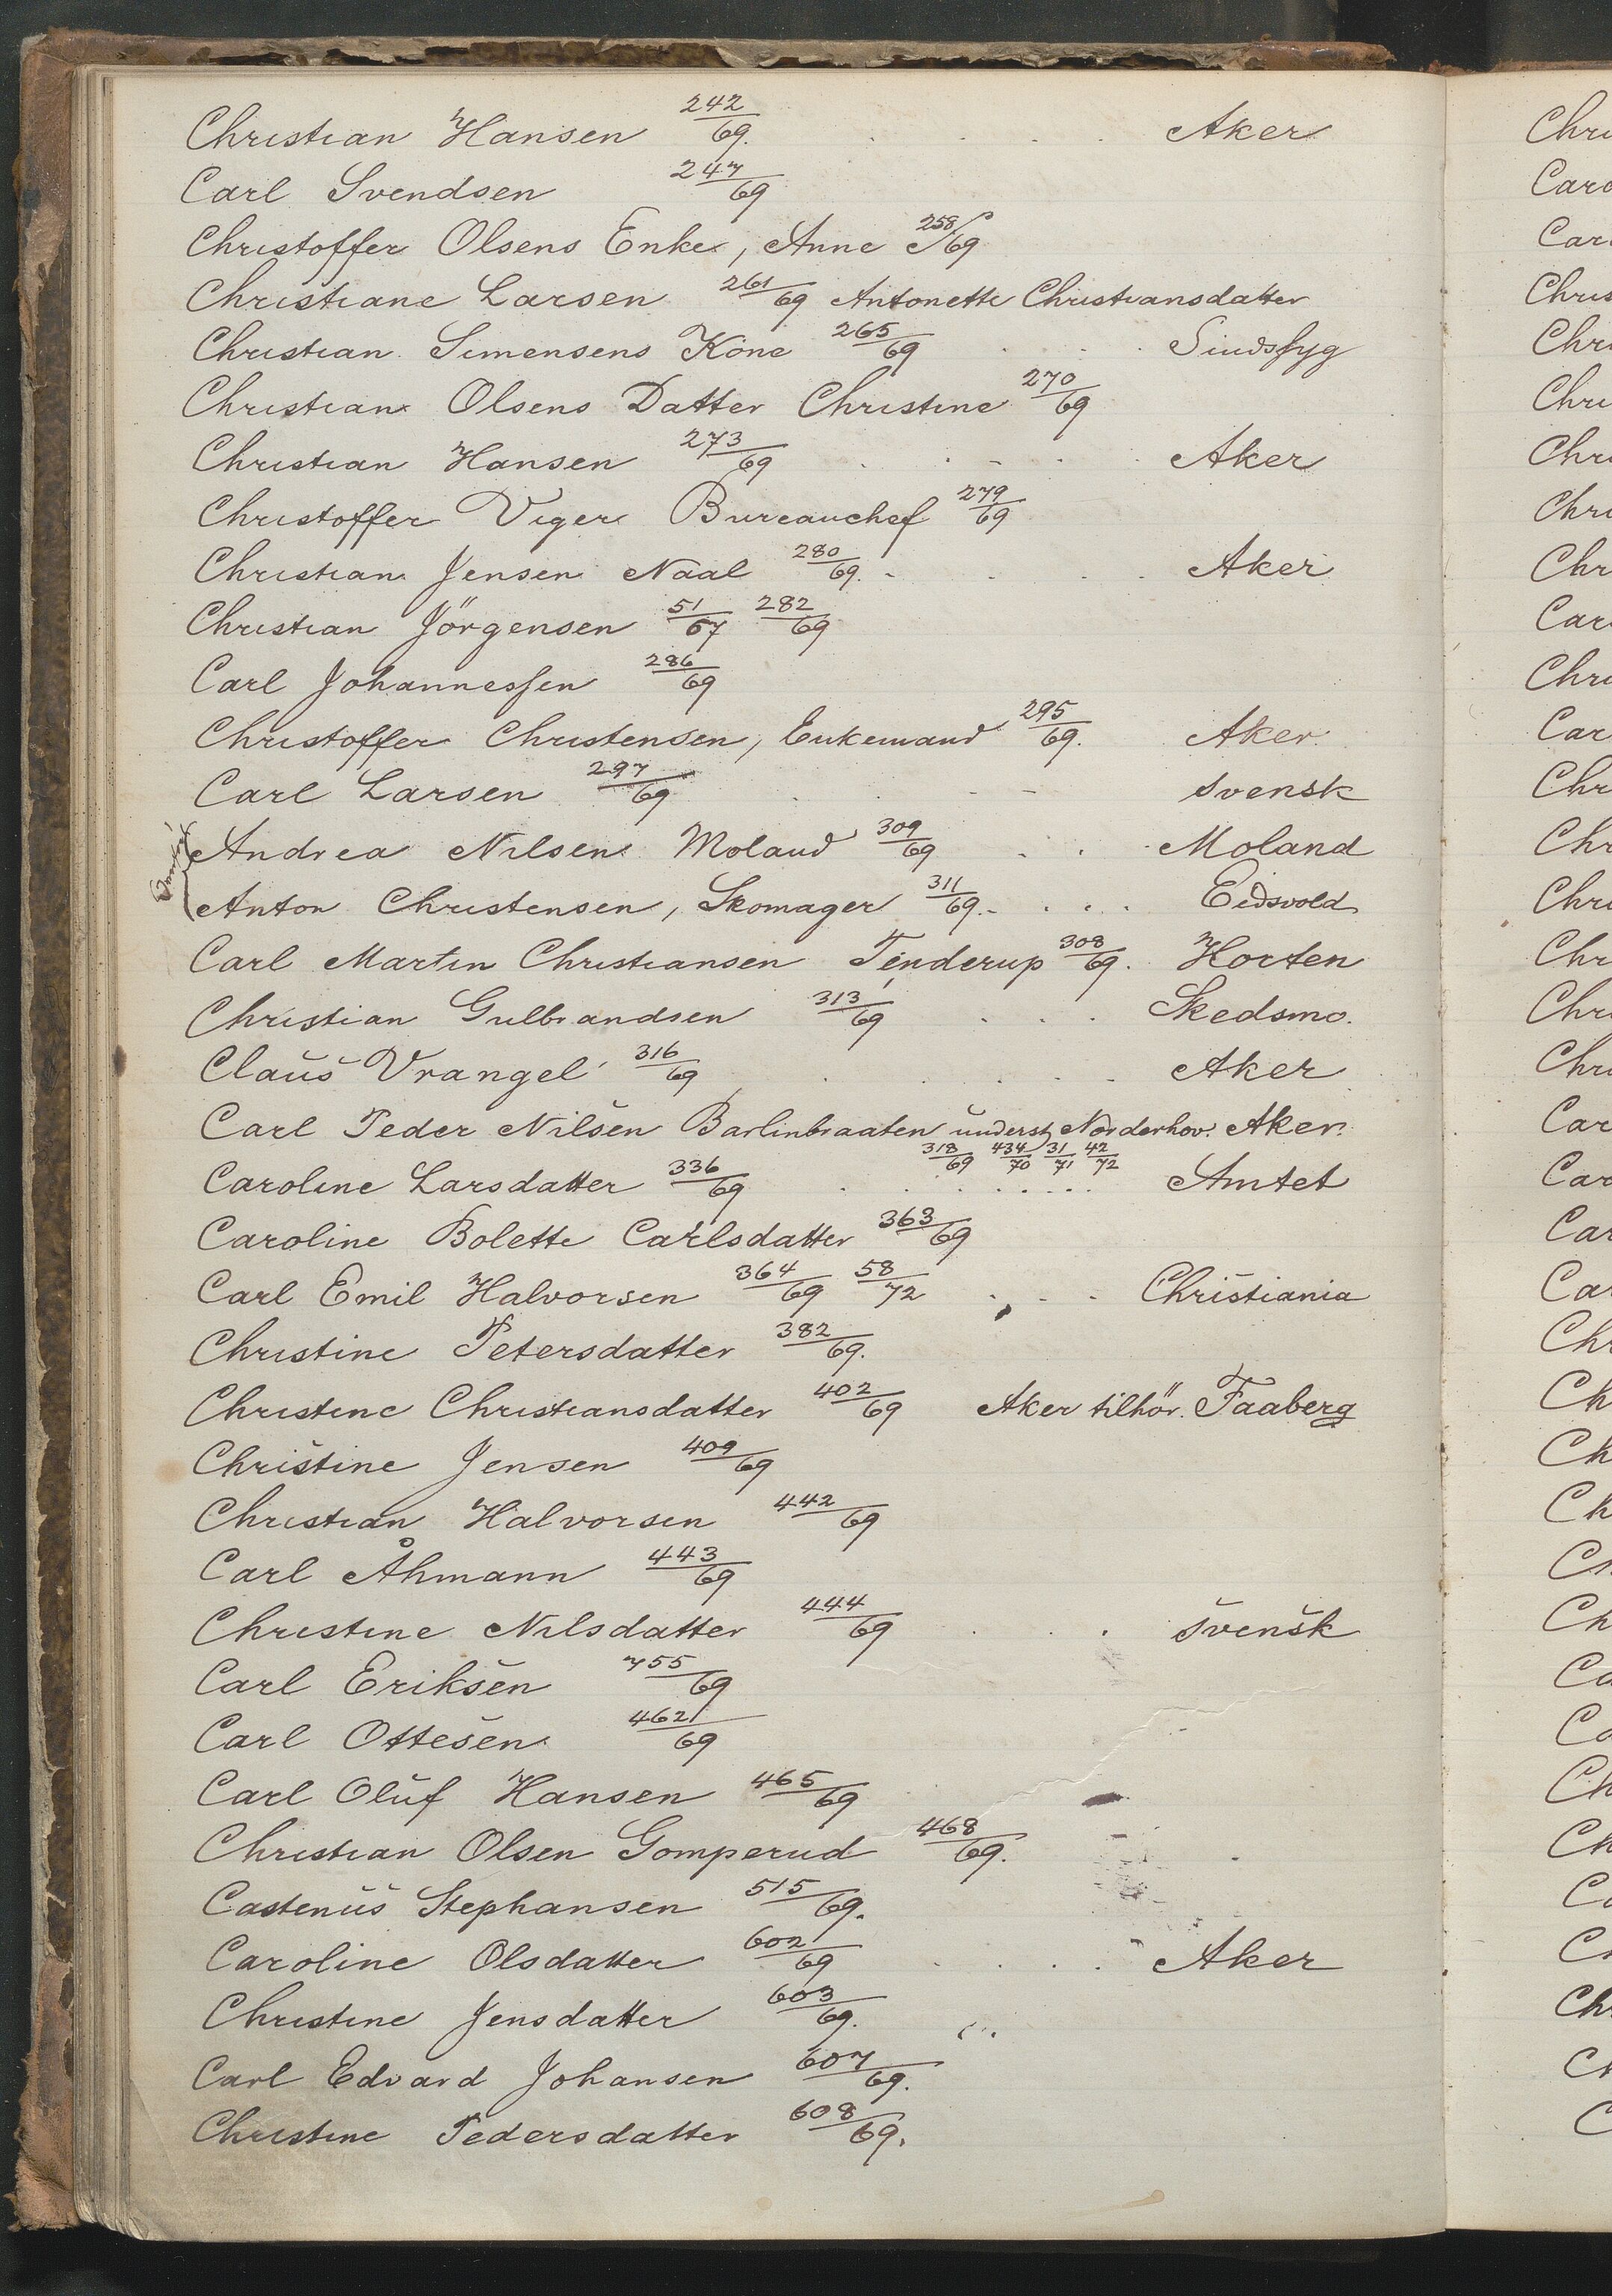 Christian Hansen 242/69. . . . . Aker
Carl Svendsen 247/69
Christoffer Olsens Enke, Anne 258/69
Christiane Larsen 261/69 Antonette Christiansdatter
Christian Simensens Kone 265/69 . . . Sindssyg
Christian Olsens Datter Christine 270/69
Christian Hansen 273/69 . . . . . Aker
Christoffer Viger Bureauchef 279/69
Christian Jensen Naal 280/69. . . . . Aker
Christian Jörgensen 51/67 282/69
Carl Johannessen 286/69
Christoffer Christensen, Enkemand 295/69. Aker
Carl Larsen 297/69 . . . . svensk
Andrea Nilsen Moland 309/69 . . . Moland
Anton Christensen, Skomager 311/69. . . . . Eidsvold
Carl Martin Christiansen Tenderup 308/69. Horten
Christian Gulbrandsen 313/69 . . . Skedsmo.
Claus Vrangel 316/69 . . . . . Aker
Carl Peder Nilsen Barlinbraaten underst. Norderhov. Aker.
318/69 434/70 31/71 42/72
Caroline Larsdatter 336/69 . . . . . . . Amtet
Caroline Bolette Carlsdatter 363/69
Carl Emil Halvorsen 364/69 58/72 . . . Christiania
Christine Petersdatter 382/69.
Christine Christiansdatter 402/69 Aker tilhör. Faaberg
Christine Jensen 409/69
Christian Halvorsen 442/69
Carl Åhmann 443/69
Christine Nilsdatter 444/69 . . . svensk
Carl Eriksen 455/69
Carl Ottesen 462/69
Carl Oluf Hansen 465/69
Christian Olsen Gomperud 468/69.
Castenus Stephansen 515/69.
Caroline Olsdatter 602/69 . . . . Aker
Christine Jensdatter 603/69.
Carl Edvard Johansen 607/69.
Christine Pedersdatter 608/69.